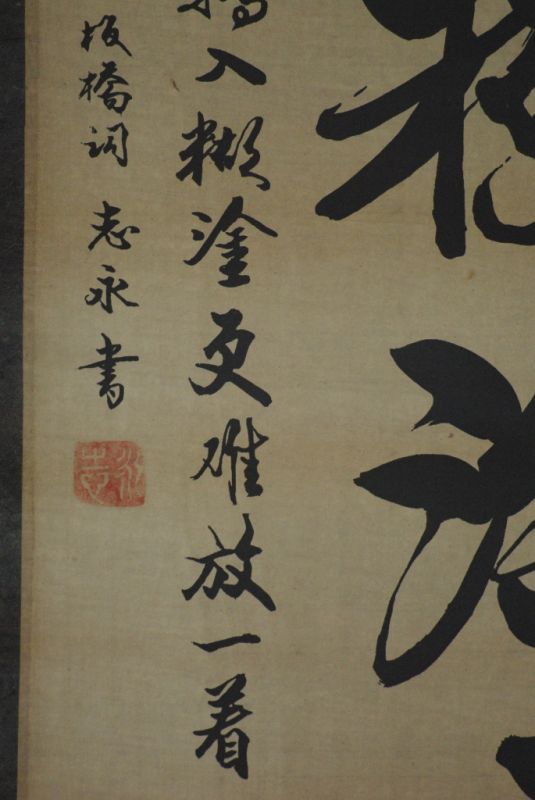 入糊塗更难放一着
板橋词 志永書